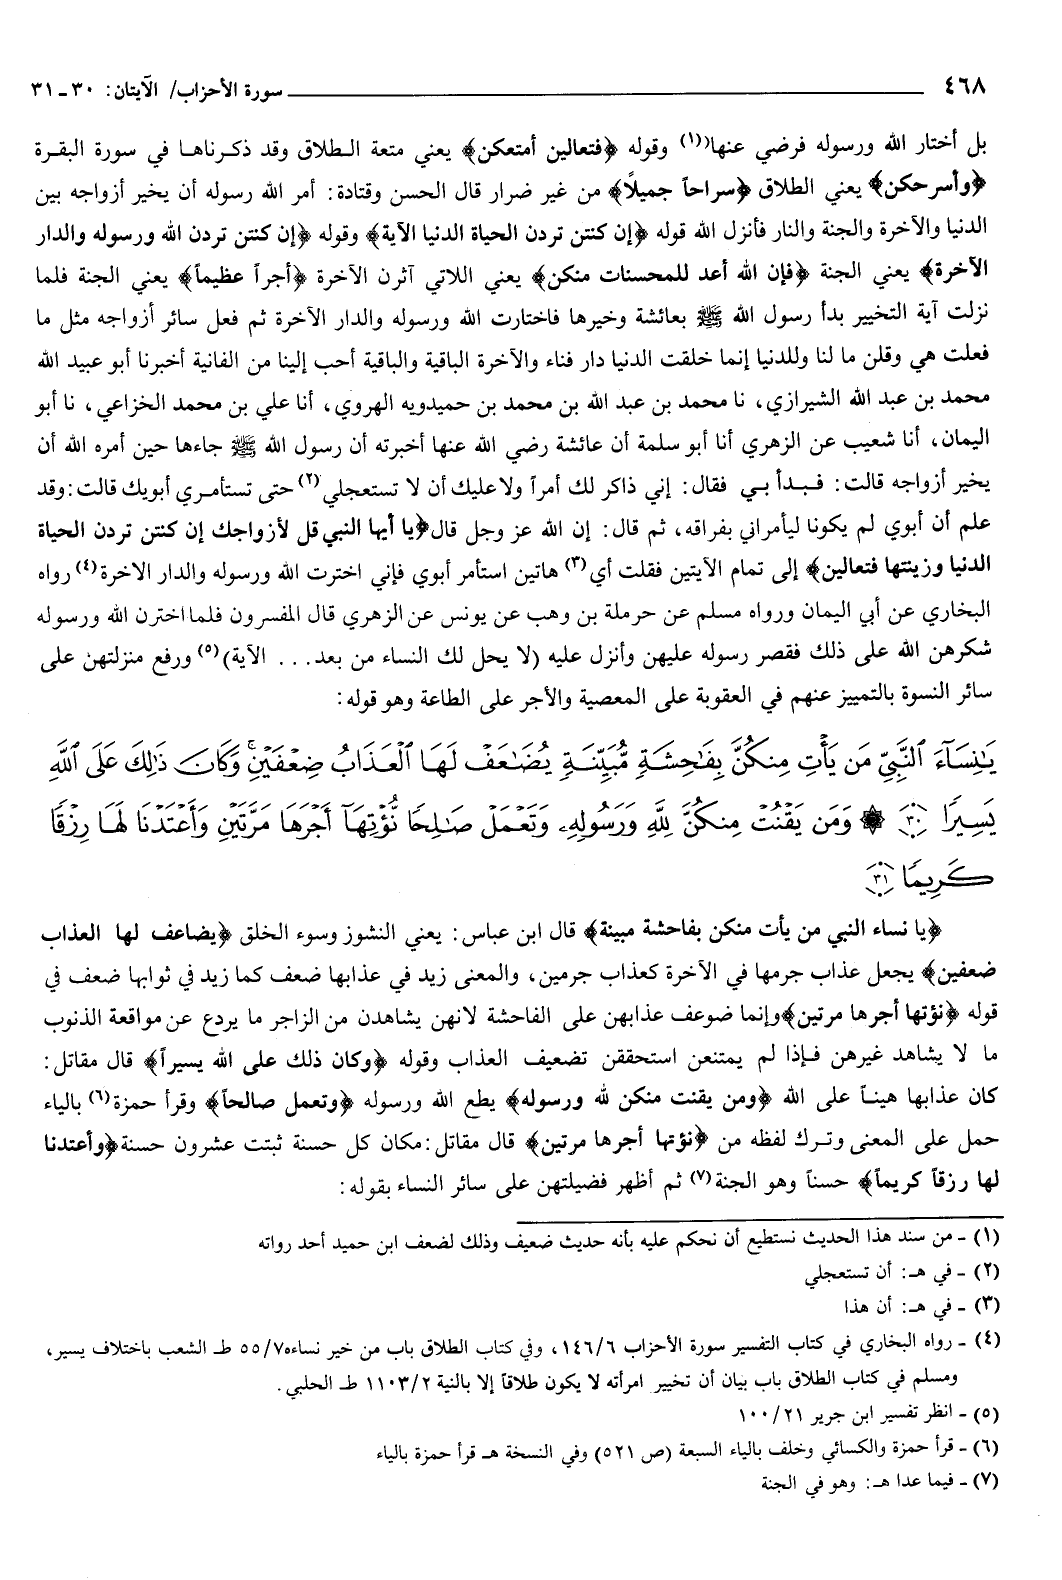 ٤٦٨ سورة الأحزاب/ الآيتان: ٣٠ ـ ٣١
بل أختار الله ورسوله فرضي عنها(١) وقوله ﴿فتعالين أمتعكن﴾ يعني متعة الطلاق وقد ذكرناها في سورة البقرة
﴿وأسرحكن﴾ يعني الطلاق ﴿سراحاً جميلًا﴾ من غير ضرار قال الحسن وقتادة: أمر الله رسوله أن يخير أزواجه بين
الدنيا والآخرة والجنة والنار فأنزل الله قوله ﴿إن كنتن تردن الحياة الدنيا الآية﴾ وقوله ﴿إن كنتن تردن الله ورسوله والدار
الآخرة﴾ يعني الجنة ﴿فإن الله أعد للمحسنات منكن﴾ يعني اللاتي آثرن الآخرة ﴿أجراً عظيماً﴾ يعني الجنة فلما
نزلت آية التخيير بدأ رسول الله ﷺ بعائشة وخيرها فاختارت الله ورسوله والدار الآخرة ثم فعل سائر أزواجه مثل ما
فعلت هي وقلن ما لنا وللدنيا إنما خلقت الدنيا دار فناء والآخرة الباقية والباقية أحب إلينا من الفانية أخبرنا أبو عبيد الله
محمد بن عبد الله الشيرازي، نا محمد بن عبد الله بن محمد بن حميدويه الهروي، أنا علي بن محمد الخزاعي، نا أبو
اليمان، أنا شعيب عن الزهري أنا أبو سلمة أن عائشة رضي الله عنها أخبرته أن رسول الله ﷺ جاءها حين أمره الله أن
يخير أزواجه قالت: فبدأ بي فقال: إني ذاكر لك أمراً ولا عليك أن لا تستعجلي(٢) حتى تستأمري أبويك قالت: وقد
علم أن أبوي لم يكونا ليأمراني بفراقه، ثم قال: إن الله عز وجل قال ﴿يا أيها النبي قل لأزواجك إن كنتن تردن الحياة
الدنيا وزينتها فتعالين﴾ إلى تمام الآيتين فقلت أي(٣) هاتين استأمر أبوي فإني اخترت الله ورسوله والدار الاخرة(٤) رواه
البخاري عن أبي اليمان ورواه مسلم عن حرملة بن وهب عن يونس عن الزهري قال المفسرون فلما اخترن الله ورسوله
شكرهن الله على ذلك فقصر رسوله عليهن وأنزل عليه (لا يحل لك النساء من بعد... الآية)(٥) ورفع منزلتهن على
سائر النسوة بالتمييز عنهم في العقوبة على المعصية والأجر على الطاعة وهو قوله:
يَٰنِسَآءَ ٱلنَّبِيِّ مَن يَأْتِ مِنكُنَّ بِفَٰحِشَةٍ مُّبَيِّنَةٍ يُضَٰعَفْ لَهَا ٱلْعَذَابُ ضِعْفَيْنِ ۚ وَكَانَ ذَٰلِكَ عَلَى ٱللَّهِ
يَسِيرًا ٣٠ ۞ وَمَن يَقْنُتْ مِنكُنَّ لِلَّهِ وَرَسُولِهِۦ وَتَعْمَلْ صَٰلِحًا نُّؤْتِهَآ أَجْرَهَا مَرَّتَيْنِ وَأَعْتَدْنَا لَهَا رِزْقًا
كَرِيمًا ٣١
﴿يا نساء النبي من يأت منكن بفاحشة مبينة﴾ قال ابن عباس: يعني النشوز وسوء الخلق ﴿يضاعف لها العذاب
ضعفين﴾ يجعل عذاب جرمها في الآخرة كعذاب جرمين، والمعنى زيد في عذابها ضعف كما زيد في ثوابها ضعف في
قوله ﴿نؤتها أجرها مرتين﴾ وإنما ضوعف عذابهن على الفاحشة لانهن يشاهدن من الزاجر ما يردع عن مواقعة الذنوب
ما لا يشاهد غيرهن فإذا لم يمتنعن استحققن تضعيف العذاب وقوله ﴿وكان ذلك على الله يسيراً﴾ قال مقاتل:
كان عذابها هيناً على الله ﴿ومن يقنت منكن لله ورسوله﴾ يطع الله ورسوله ﴿وتعمل صالحاً﴾ وقرأ حمزة(٦) بالياء
حمل على المعنى وترك لفظه من ﴿نؤتها أجرها مرتين﴾ قال مقاتل: مكان كل حسنة ثبتت عشرون حسنة ﴿وأعتدنا
لها رزقاً كريماً﴾ حسناً وهو الجنة(٧) ثم أظهر فضيلتهن على سائر النساء بقوله:
(١) ـ من سند هذا الحديث نستطيع أن نحكم عليه بأنه حديث ضعيف وذلك لضعف ابن حميد أحد رواته
(٢) ـ في هـ: أن تستعجلي
(٣) ـ في هـ: أن هذا
(٤) ـ رواه البخاري في كتاب التفسير سورة الأحزاب ١٤٦/٦، وفي كتاب الطلاق باب من خير نساءه ٥٥/٧ طـ الشعب باختلاف يسير،
ومسلم في كتاب الطلاق باب بيان أن تخيير امرأته لا يكون طلاقاً إلا بالنية ١١٠٣/٢ طـ الحلبي.
(٥) ـ انظر تفسير ابن جرير ١٠٠/٢١
(٦) ـ قرأ حمزة والكسائي وخلف بالياء السبعة (ص ٥٢١) وفي النسخة هـ قرأ حمزة بالياء
(٧) ـ فيما عدا هـ: وهو في الجنة